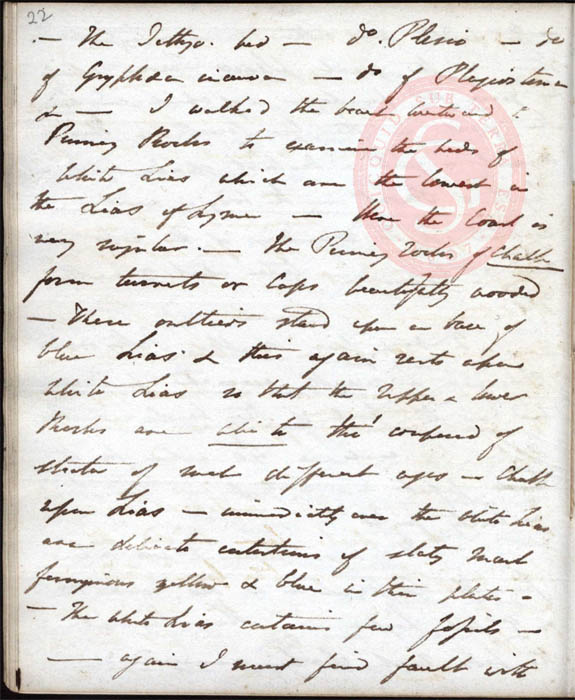 22
. – The Icthyo. bed – do. Plesio – do
of Gryphaea incurva – do of Plagiostoma
– I walked the beach westward to
Pinney Rocks to examine the beds of
White Lias which are the lowest in
the Lias of Lyme – Here the Coast is
very regular. – The Pinney rocks of Chalk
form turrets or Caps beautifully wooded
– These outliers stand upon a base of
blue Lias & this again rests upon
White Lias so that the upper & lower
Rocks are white tho' composed of
strata of such different ages – Chalk
upon Lias – immediately over the White Lias
are delicate alternations of slaty Marl
ferruginous yellow & blue in thin plates –
– The White Lias contains few fossils –
– again I must find fault with
QUID SUB TERRA EST
GS
1807